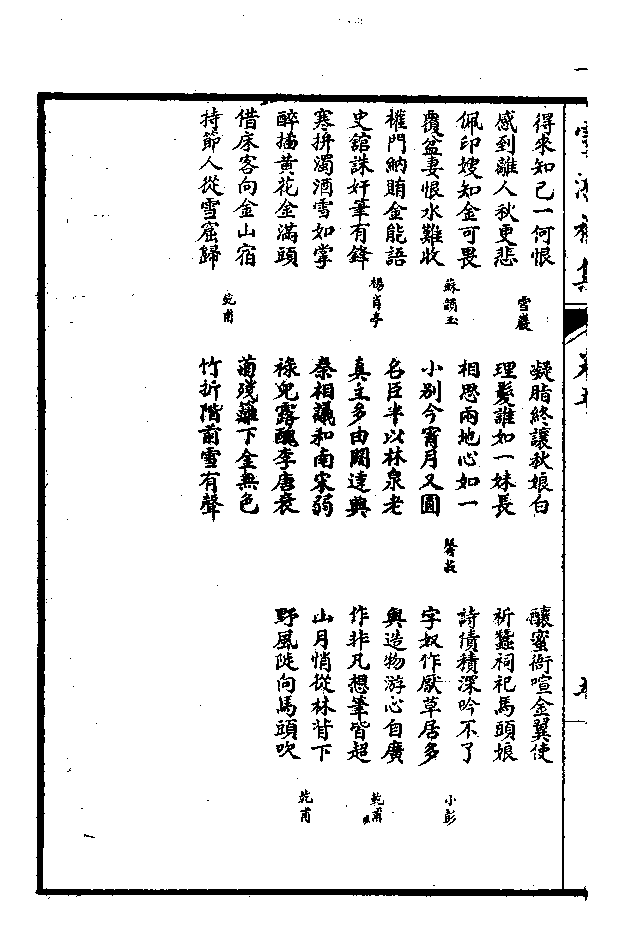 得求知己一何恨
感到離人秋更悲
雪巖
佩印嫂知金可畏
覆盆妻恨水難收
蘇韻玉
權門納賄金能語
史館誅奸筆有鋒
楊肖亭
寒拚濁酒雪如掌
醉插黃花金滿頭
借床客向金山宿
持節人從雪窟歸
乾甫
凝脂終讓秋娘白
理髮誰如一妹長
相思兩地心如一
小別今宵月又圓
馨叔
名臣半以林泉老
真主多由闊達興
秦相議和南宋弱
祿兒露醜李唐衰
菊殘籬下金無色
竹折階前雪有聲
釀蜜衙喧金翼使
祈蠶祠祀馬頭娘
詩債積深吟不了
字奴作厭草居多
小彭
與造物游心自廣
作非凡想筆皆超
乾甫
山月悄從林背下
野風陡向馬頭吹
乾甫